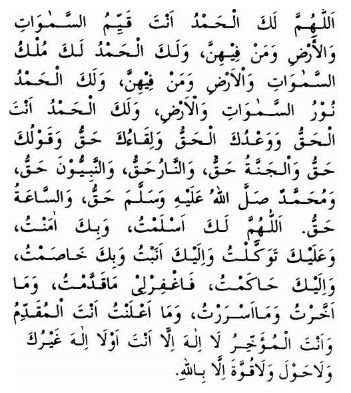 اَللّٰهُمَّ لَكَ الْحَمْدُ اَنْتَ قَيِّمُ السَّمٰوَاتِ
وَالْأَرْضِ وَمَنْ فِيْهِنَّ، وَلَكَ الْحَمْدُ لَكَ مُلْكُ
السَّمٰوَاتِ وَالْاَرْضِ وَمَنْ فِيْهِنَّ، وَلَكَ الْحَمْدُ
نُوْرُ السَّمٰوَاتِ وَالْاَرْضِ، وَلَكَ الْحَمْدُ اَنْتَ
الْحَقُّ وَوَعْدُكَ الْحَقُّ وَلِقَاءُكَ حَقُّ وَقَوْلُكَ
حَقُّ وَالْجَنَّةُ حَقُّ، وَالنَّارُحَقُّ، وَالنَّبِيُّوْنَ حَقُّ،
وَمُحَمَّدٌ صَلَّ اللهُ عَلَيْهِ وَسَلَّمَ حَقُّ، وَالسَّاعَةُ
حَقُّ. اَللّٰهُمَّ لَكَ اَسْلَمْتُ، وَبِكَ اٰمَنْتُ،
وَعَلَيْكَ تَوَكَّلْتُ وَاِلَيْكَ اَنَبْتُ وَبِكَ خَاصَمْتُ،
وَاِلَيْكَ حَاكَمْتُ، فَاغْفِرْلِىْ مَاقَدَّمْتُ، وَمَا
اَخَّرْتُ وَمَااَسْرَرْتُ، وَمَا اَعْلَنْتُ اَنْتَ الْمُقَدِّمُ
وَاَنْتَ الْمُؤَخِّرُ لَا اِلٰهَ اِلَّا اَنْتَ اَوْلَا اِلٰهَ غَيْرُكَ
وَلَاحَوْلَ وَلَاقُوَّةَ اِلَّا بِاللهِ.